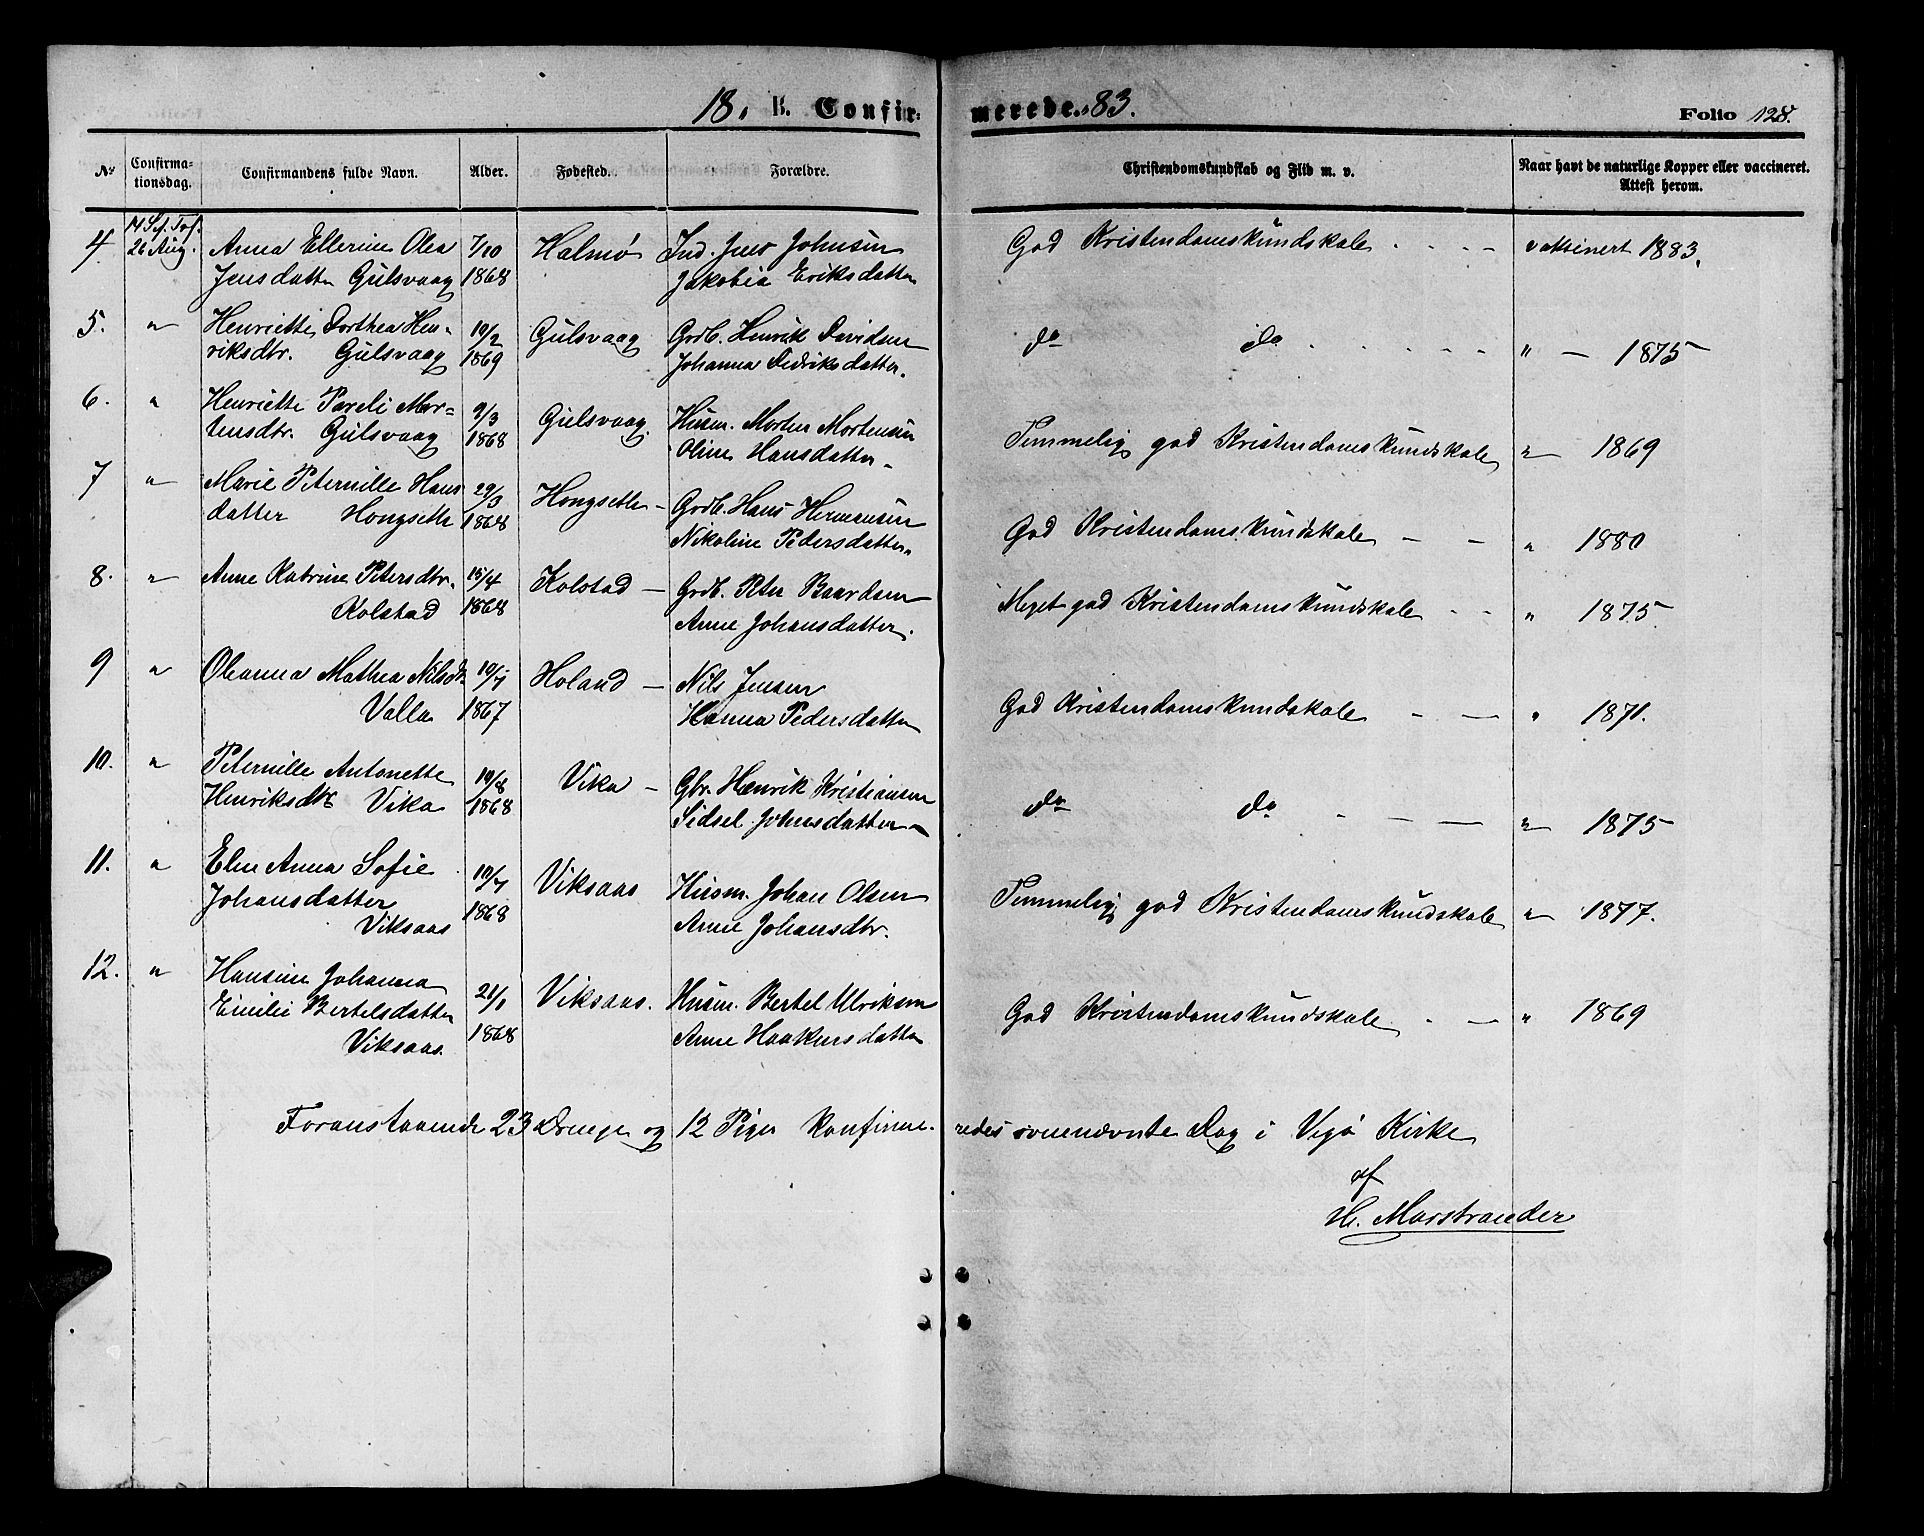 18. B. Confir-merede. 83. Folio 128.
No Confirma-tionsdag. Confirmandens fulde Navn. Alder. Fødested. Forældre. Christendomskundskab og Flid m. v. Naar havt de naturlige Kopper eller vaccineret. Attest herom.
14 S.f. Tref.
4. 26 Aug. Anna Ellerine Olea 7/10 Halmø Ind. Jens Johnsen God Kristendomskundskab - - - - vaksinert 1883.
Jensdatter Gulsvaag 1868 Jakobia Eriksdatter
5. " Henriette Dorthea Hen- 10/2 Gulsvaag Grdb. Henrik Davidsen do do - - - - " - 1875
riksdtr. Gulsvaag 1869 Johanna Didriksdatter.
6. " Henriette Pareli Mor- 9/3 Gulsvaag. Husm. Morten Mortensen Temmelig god Kristendomskundskab " 1869
tensdtr. Gulsvaag 1868 Oline Hansdatter
7 " Marie Peternille Hans 29/3 Hongseth - Grdb. Hans Hermansen God Kristendomskundskab - - " 1880
datter Hongseth 1868 Nikoline Pedersdatter
8. " Anne Katrine Petersdtr. 15/4 Kolstad - Grdb. Peter Baardsen Meget god Kristendomskundskab - - " 1875
Kolstad 1868 Anne Johansdatter.
9 " Oleanna Mathea Nilsdt. 10/7 Holand - Nils Jensen God Kristendomskundskab - - " 1871.
Valla 1867 Hanna Pedersdatter
10. " Peternille Antonette 19/8 Vika - Gbr. Henrik Kristiansen do do - - - " 1875
Henriksdtr Vika 1868 Sidsel Johnsdatter
11. " Elen Anna Sofie 10/7 Viksaas Husm. Johan Olsen Temmelig god Kristendomskundskab " 1877.
Johansdatter 1868 Anne Johansdtr.
Viksaas
12. " Hansine Johanna 21/1 Viksaas. Husm. Bertel Ulriksen God Kristendomskundskab - - " 1869
Emilie Bertelsdatter 1868 Anne Haakensdatter
Viksaas.
Foranstaaende 23 Drenge og 12 Piger konfirme-redes ovennævnte Dag i Vegø Kirke
af
H. Marstrander